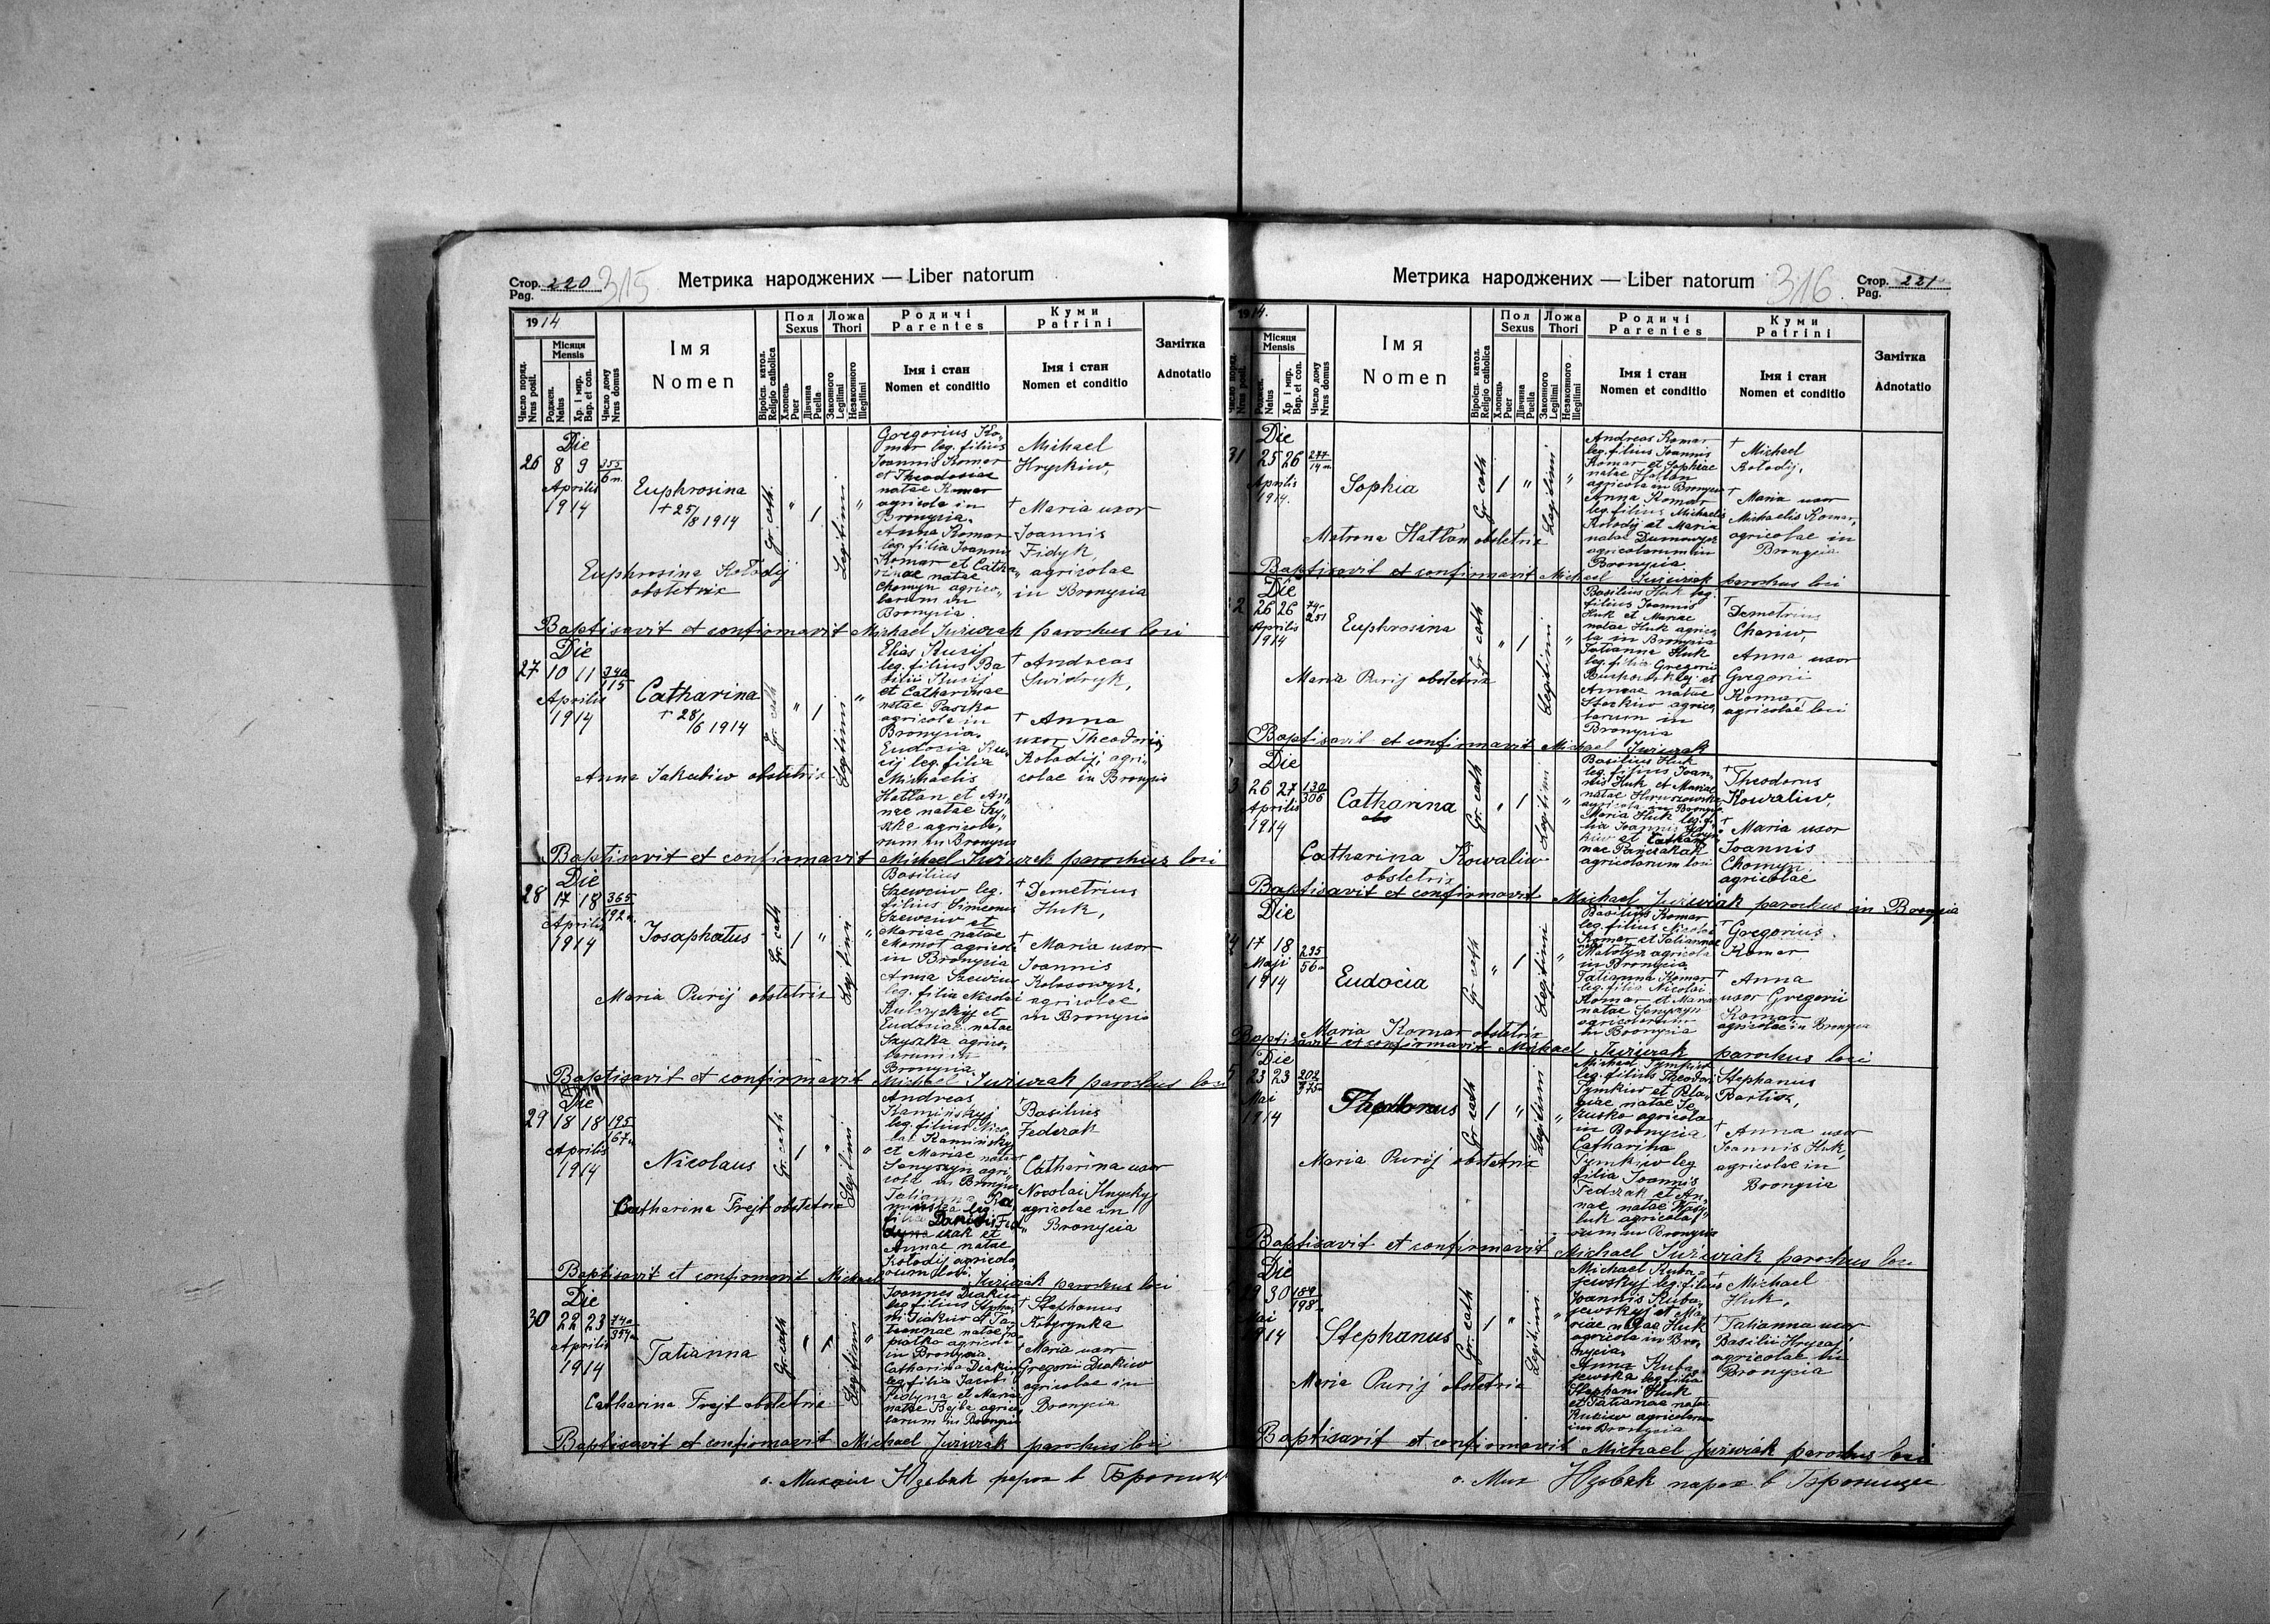 Стор. 220 315
Pag.
Метрика народжених — Liber natorum
1914
Число поряд.
Nrus posit.
Місяця
Mensis
Роджен.
Natus
Хр. і мир.
Bap. et con.
Число дому
Nrus domus
Імя
Nomen
Віроісп. катол.
Religio catholica
Пол
Sexus
Хлопець
Puer
Дівчина
Puella
Ложа
Thori
Законного
Legitimi
Незаконного
Illegitimi
Родичі
Parentes
Імя і стан
Nomen et conditio
Куми
Patrini
Імя і стан
Nomen et conditio
Замітка
Adnotatio
Die
26 8 9
Aprilis
1914
Euphrosina
+ 25/8 1914
Gr. cath.
" 1
Legitimi
"
Gregorius Ko-
mar leg. filius
Joannis Komar
et Theodosiae
natae Komar
agricola in
Bronycia.
Anna Komar
leg. filia Joannis
Komar et Catha
rinae natae
Chomyn agrico-
larum in
Bronycia
Michael
Hryckiw,
+ Maria uxor
Joannis
Fidyk,
agricolae
in Bronycia
Euphrosina Kołodij
obstetrix
Baptisavit et confirmavit Michael Juzwiak parochus loci
Die
27 10 11 340/115
Aprilis
1914
Catharina
+ 28/6 1914
Gr. cath
" 1
Legitimi
"
Elias Kusij
leg. filius Ba
silii Kusij
et Catharinae
natae Paszko
agricola in
Bronycia.
Eudosia Ku-
sij leg. filia
Michaelis
Hatlan et An-
nae natae Szy-
szka agricola-
rum in Bronycia
+ Andreas
Swidryk,
+ Anna
uxor Theodorii
Kołodij, agri-
colae in Bronycia
Anna Jakubiw obstetrix
Baptisavit et confirmavit Michael Juzwiak parochus loci
Die
28 17 18 365/192
Aprilis
1914
Josaphatus
Gr. cath
1 "
Legitimi
"
Basilius
Szewciw leg.
filius Simeonis
Szewciw et
Mariae natae
Mamot agricola
in Bronycia
Anna Szewciw
leg. filia Nicolai
Kulczyckyj et
Eudosiae natae
Szyszka agrico-
larum in
Bronycia.
+ Demetrius
Huk,
+ Maria uxor
Joannis
Kolosowycz,
agricolae
in Bronycia
Maria Purij obstetrix
Baptisavit et confirmavit Michael Juzwiak parochus loci
Die
29 18 18 195/67
Aprilis
1914
Nicolaus
Gr. cath
1 "
Legitimi
"
Andreas
Kamińskyj
leg. filius Nico-
lai Kamińskyj
et Mariae natae
Senyszyn agri-
cola in Bronycia
Tatianna Ka
mińska leg.
filia Danielis Fed
czak et
Annae natae
Kołodij agricola
rum loci.
+ Basilius
Fedczak
Catharina uxor
Nocolai Hnyckyj
agricolae in
Bronycia
Catharina Frejt obstetrix
Baptisavit et confirmavit Michael Juzwiak parochus loci
Die
30 22 23
Aprilis
1914
Tatianna
Gr. cath
Legitimi
"
Joannes Diakiw
leg. filius Stepha
ni Diakiw et Ta
tiannae natae
agricola
in Bronycia.
Catharina Diakiw
leg. filia Jacobi
Fidyna et Maria
natae Bejba agrico
larum in Bronycia
+ Stephanus
+ Maria uxor
Gregorii Diakiw
agricolae in
Bronycia
Catharina Frejt obstetrix
Baptisavit et confirmavit Michael Juzwiak parochus loci
Метрика народжених — Liber natorum
316 Стор. 221
Pag.
1914.
Число поряд.
Nrus posit.
Місяця
Mensis
Роджен.
Natus
Хр. і мир.
Bap. et con.
Число дому
Nrus domus
Імя
Nomen
Віроісп. катол.
Religio catholica
Пол
Sexus
Хлопець
Puer
Дівчина
Puella
Ложа
Thori
Законного
Legitimi
Незаконного
Illegitimi
Родичі
Parentes
Імя і стан
Nomen et conditio
Куми
Patrini
Імя і стан
Nomen et conditio
Замітка
Adnotatio
Die
31 25 26 277/14
Aprilis
1914.
Sophia
Gr. cath
1 "
Legitimi
"
Andreas Komar
leg. filius Joannis
Komar et Sophiae
natae Hatlan
agricola in Bronycia
Anna Komar
leg. filius Michaelis
Kołodij et Maria
natae Dumowycz
agricolarum in
Bronycia.
+ Michael
Kołodij,
+ Maria uxor
Michaelis Komar,
agricolae in
Bronycia
Matrona Hatlan obstetrix
Baptisavit et confirmavit Michael Juzwiak parochus loci
Die
2 26 26
Aprilis
1914
Euphrosina
Gr. cath
" 1
Legitimi
"
Basilius Huk leg.
filius Joannis
Huk et Mariae
natae Huk agrico
la in Bronycia
Tatianna Huk
leg. filia Gregorii
et
Annae natae
agrico
larum in
Bronycia
+ Demetrius
Chariw,
Anna uxor
Gregorii
Komar,
agricolae loci
Maria Purij obstetrix
Baptisavit et confirmavit Michael Juzwiak
Die
3 26 27 130/306
Aprilis
1914
Catharina
Gr. cath
" 1
Legitimi
"
Basilius Huk
leg. filius Joan-
nis Huk et Mariae
natae
agricola in Bronycia
Maria Huk leg. fi-
lia Joannis
et Cathari
nae Panczakak
agricolarum loci
+ Theodorus
Kowaliw,
+ Maria uxor
Joannis
Chomyn
agricolae
Catharina Kowaliw
obstetrix
Baptisavit et confirmavit Michael Juzwiak parochus in Bronycia
Die
4 17 18 235/56
Maji
1914
Eudocia
Gr. cath
" 1
Legitimi
"
Basilius Komar
leg. filius Nicolai
Komar et Tatiannae
agricola
in Bronycia
Tatianna Komar
leg. filia Nicolai
Komar et Maria
natae Senyszyn
agricolarum
in Bronycia
+ Gregorius
Komar
+ Anna
uxor Gregorii
Komar
agricolae in Bronycia
Maria Komar obstetrix
Baptisavit et confirmavit Michael Juzwiak parochus loci
Die
5 23 23 202
Mai
1914
Theodorus
Gr. cath
1 "
Legitimi
"
Michael Tymkiw
leg. filius Theodori
Tymkiw et Pela-
giae natae
agricola
in Bronycia
Catharina
Tymkiw leg
filia Joannis
Fedczak et An-
nae natae Wasy-
luk agricola-
rum in Bronycia
Stephanus
Bartisz,
+ Anna uxor
Joannis Huk,
agricolae in
Bronycia
Maria Purij obstetrix
Baptisavit et confirmavit Michael Juzwiak parochus loci
Die
29 30 189/198
Mai
1914
Stephanus
Gr. cath
1 "
Legitimi
"
Michael Kuba-
jewskyj leg. filius
Joannis Kuba-
jewskyj et Ma-
riae natae Huk
agricola in Bro-
nycia.
Anna Kuba-
jewska leg. filia
Stephani Huk
et Tatianae natae
Kuziw agricolarum
in Bronycia
+ Michael
Huk,
+ Tatianna uxor
Basilii Hrycaj
agricolae in
Bronycia
Maria Purij obstetrix
Baptisavit et confirmavit Michael Juzwiak parochus loci
о. Михаіл Юзвяк парох в Брониці
о. Мих Юзвяк парох в Броници